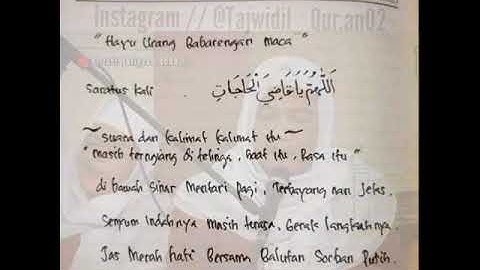 Instagram // @Tajwidil_Qur.an02
"Hayu Urang Babarengan Maca"
Saratus kali اَللّٰهُمَّ يَا قَاضِيَ الْحَاجَاتِ
~ Suara dan kalimat kalimat itu ~
"masih terngiang di telinga, Saat itu, Rasa itu"
di bawah Sinar Mentari Pagi, Terbayang nan Jelas.
Senyum Indahnya masih terasa, Gerak langkahnya.
Jas Merah hati Bersama Balutan Sorban Putih.